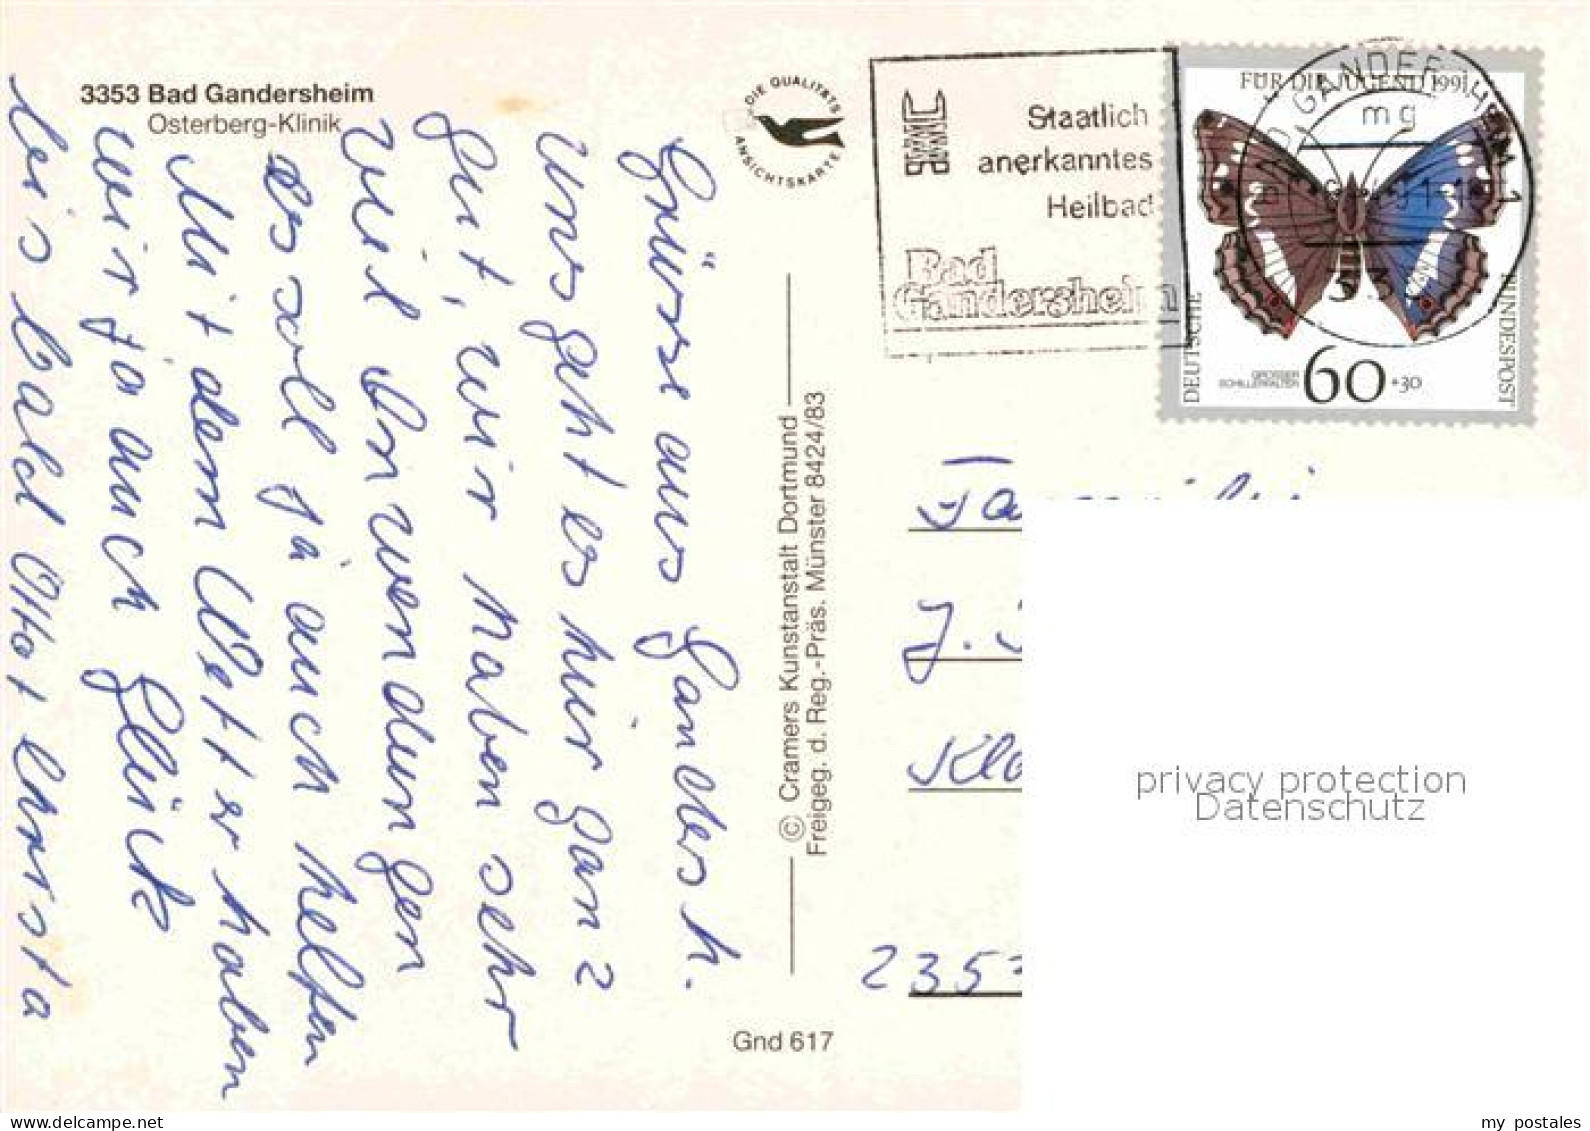 3353 Bad Gandersheim
Osterberg-Klinik
DIE QUALITÄTS
ANSICHTSKARTE
Grüsse aus Gandersh.
Uns geht es hier ganz
gut, wir haben sehr
viel Anwendungen
es soll ja auch helfen
Mit dem Wetter haben
wir ja auch Glück
bis bald Otto + Christa
© Cramers Kunstanstalt Dortmund
Freigeg. d. Reg.-Präs. Münster 8424/83
Gnd 617
Staatlich
anerkanntes
Heilbad
Bad
Gandersheim
FÜR DIE JUGEND 1991
mg
DEUTSCHE
BUNDESPOST
GROSSER
SCHILLERFALTER
60+30
J.
Klo
235
privacy protection
Datenschutz
my postales